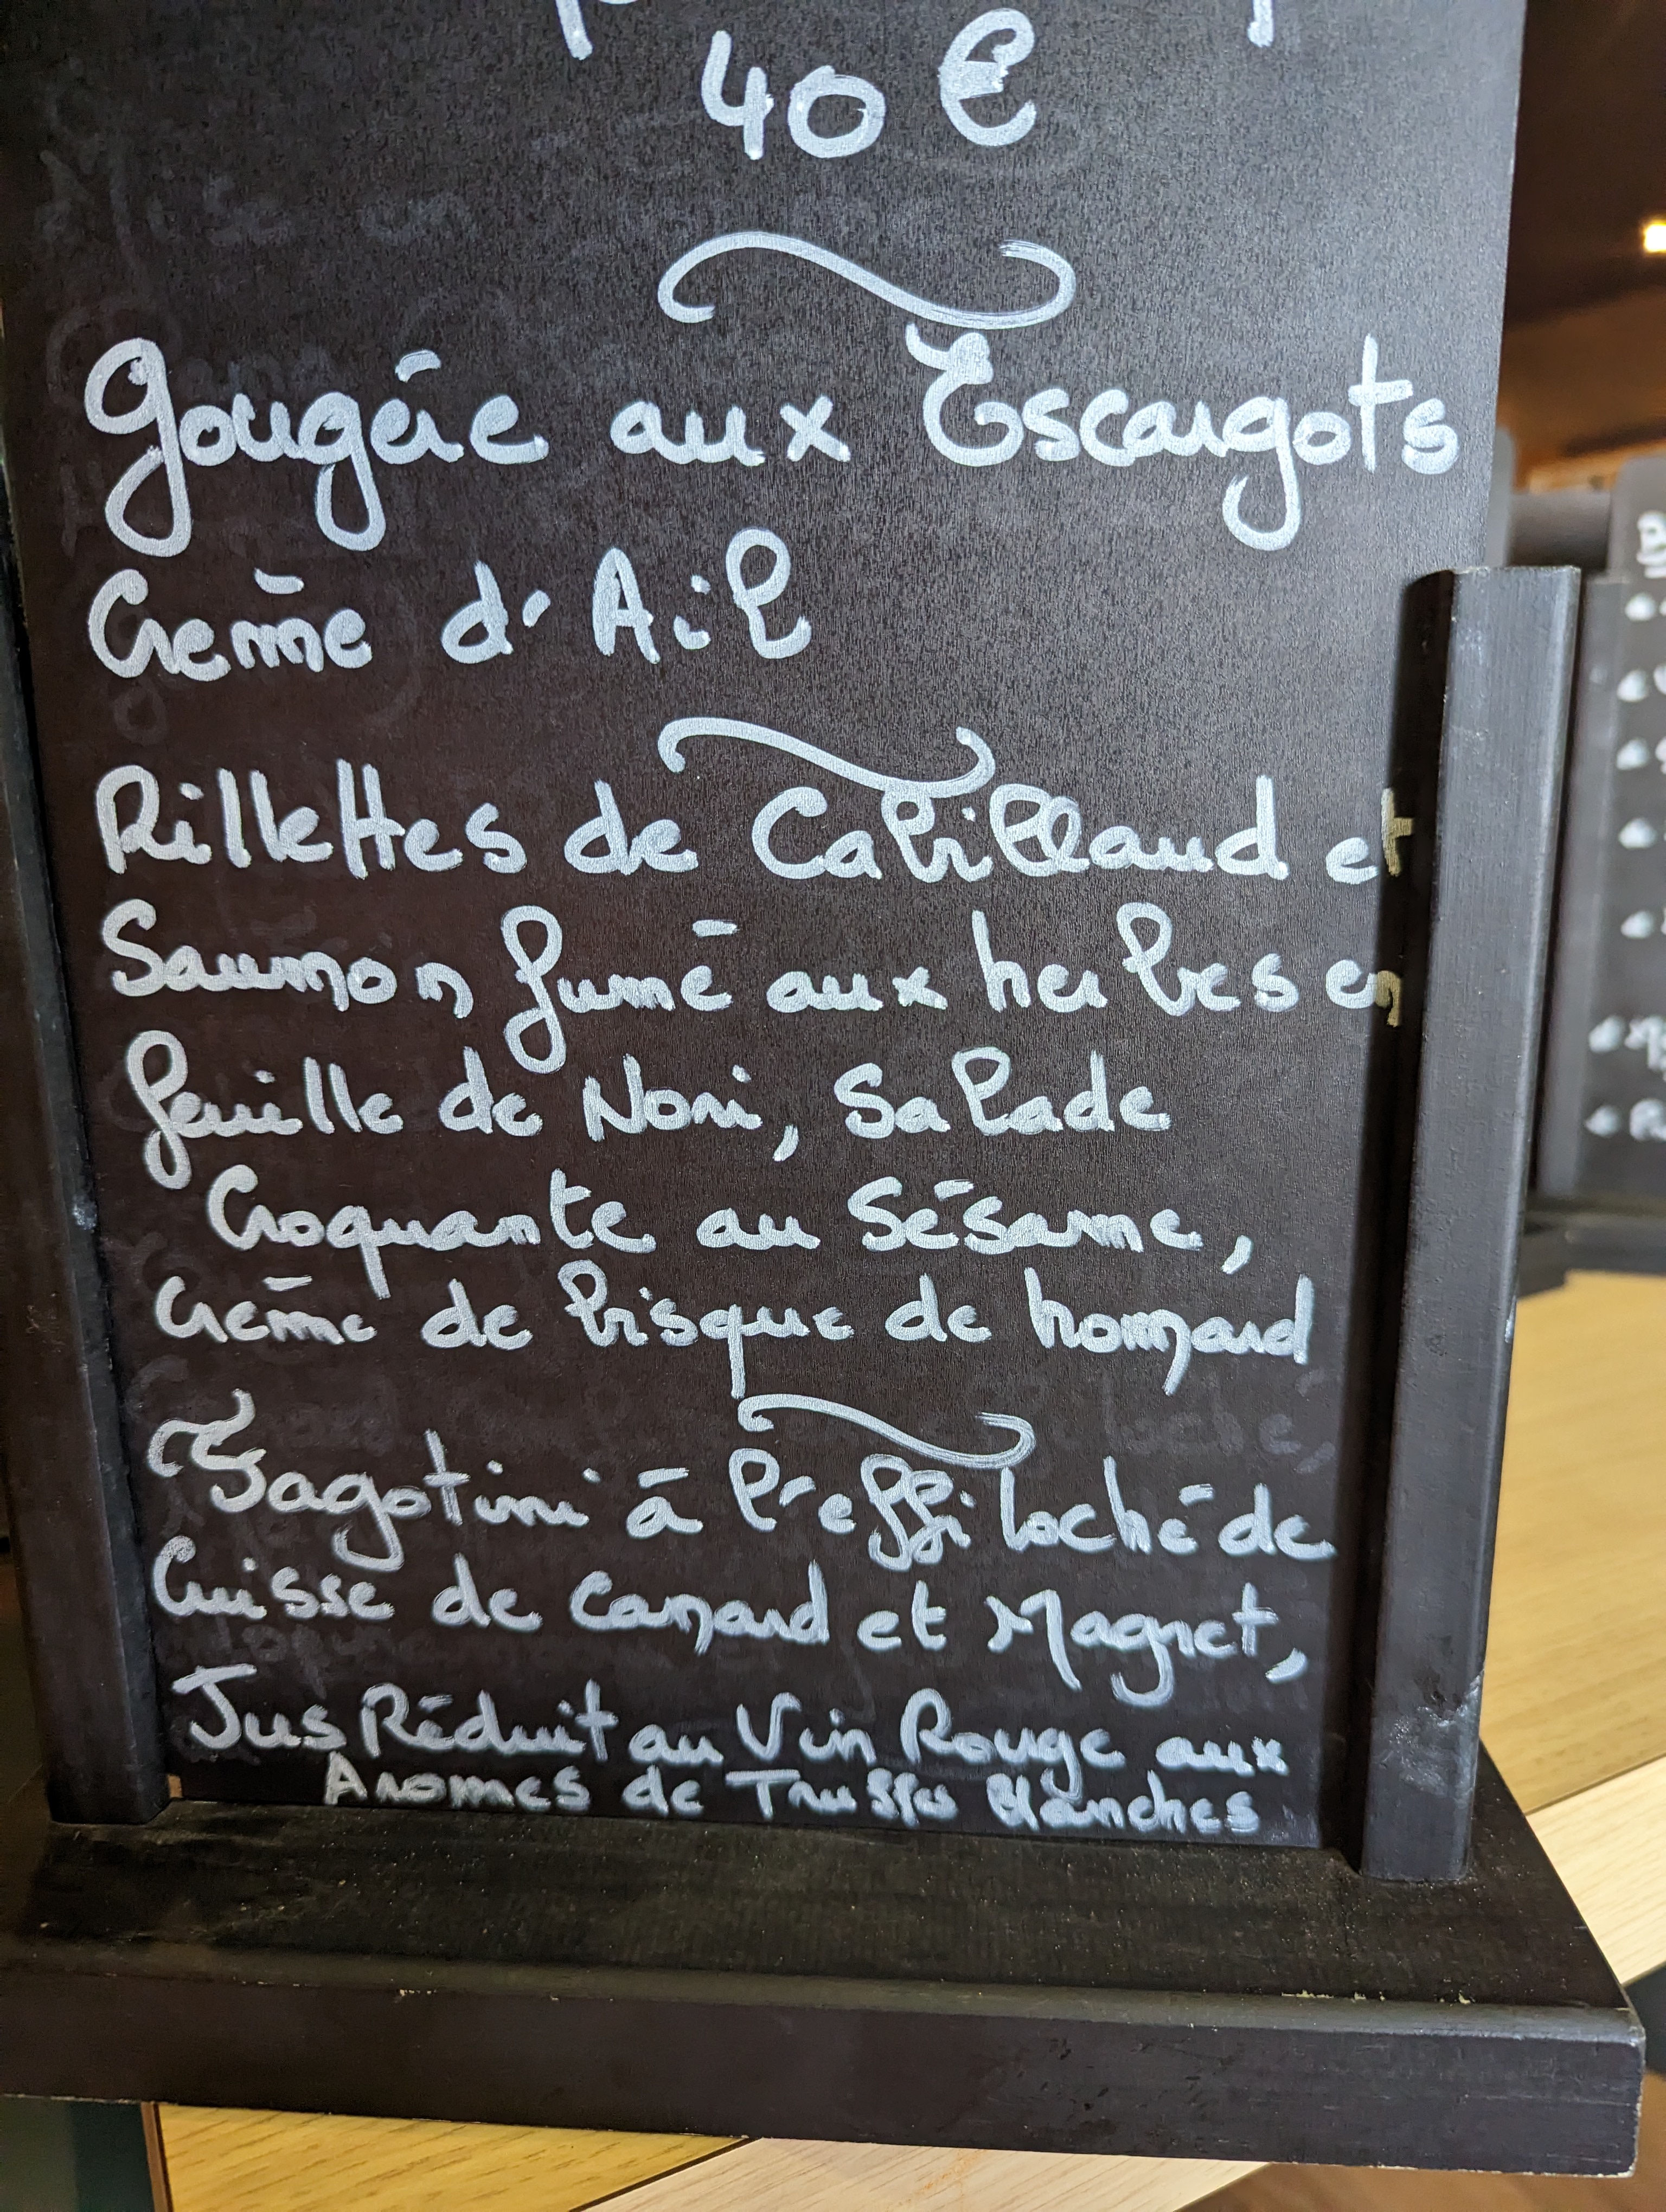 40 €
Gougère aux Escargots
Crème d'Ail
Rillettes de Cabillaud et
Saumon fumé aux herbes en
feuille de Nori, Salade
Croquante au Sésame,
Crème de bisque de homard
Fagotini à l'effiloché de
Cuisse de Canard et Magret,
Jus Réduit au Vin Rouge aux
Aromes de Truffes Blanches